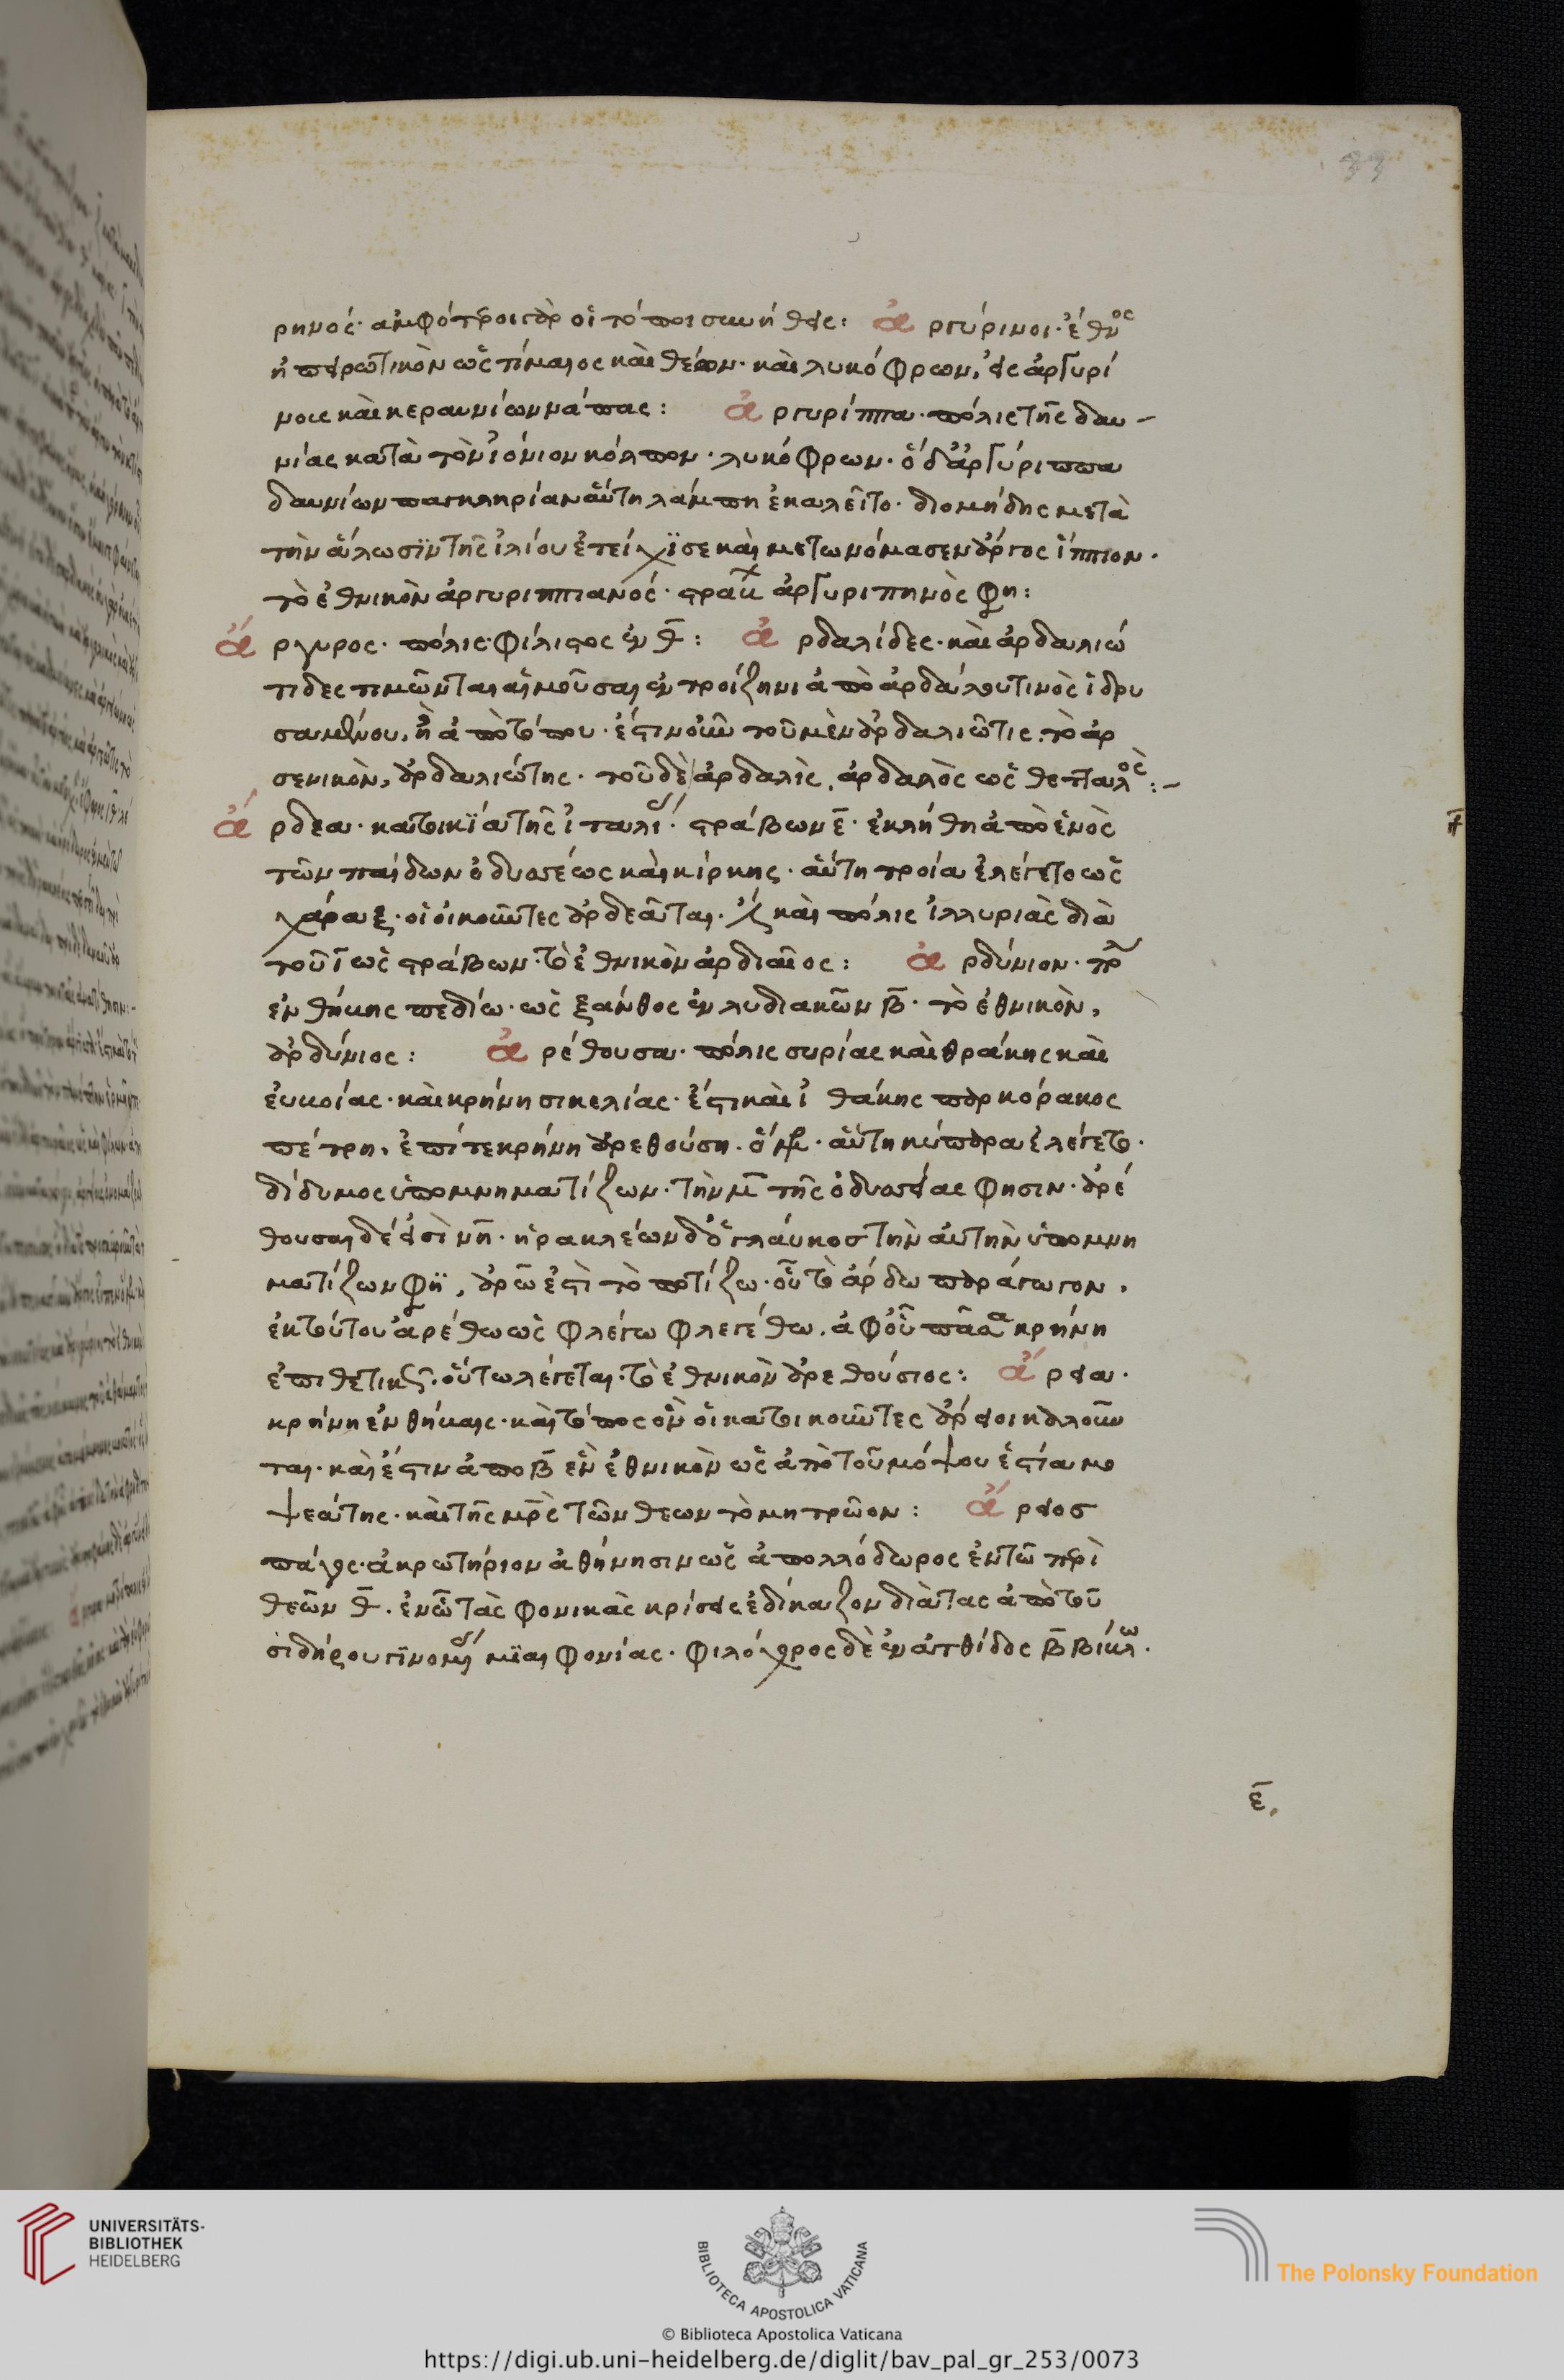 33
ρηνός· ἀμφότεροι γὰρ οἱ τόποι συνήθεις: ἀργύρινοι· ἔθνος
ἠπειρωτικὸν ὡς τίμαιος καὶ θέων· καὶ λυκόφρων, εἰς ἀργυρί
νους καὶ κεραυνίων νάπας: ἀργυρίππα· πόλις τῆς δαυ-
νίας κατὰ τὸν ἰόνιον κόλπον· λυκόφρων· ὁ δ' ἀργύριππα
δαυνίων παγκληρίαν αὕτη λάμπη ἐκαλεῖτο· διομήδης μετὰ
τὴν ἅλωσϊν τῆς ἰλίου ἐτείχϊσε καὶ μετωνόμασεν ἄργος ἵππιον·
τὸ ἐθνικὸν ἀργυριππιανός· στρα ἀργυριπηνὸς φη:
ἄργυρος· πόλις· φίλιστος ἐν θ̄: ἀρδαλίδες· καὶ ἀρδαλιώ
τιδες τιμῶνται αἱ μοῦσαι ἐν τροίζηνι ἀπὸ ἀρδάλου τινὸς ἱδρυ
σαμένου, ἢ ἀπὸ τόπου· ἔστιν οὖν τοῦ μὲν ἀρδαλιῶτις· τὸ ἀρ
σενικὸν, ἀρδαλιώτης· τοῦ δὲ ἀρδαλὶς, ἀρδαλὸς ὡς θετταλὸς:-
ἄρδεα· κατοικϊα τῆς ἰταλί· στράβων ε̄· ἐκλήθη ἀπὸ ἑνὸς
τῶν παίδων ὀδυσσέως καὶ κίρκης· αὕτη τροία ἐλέγετο ὡς
χάραξ· οἱ οἰκοῦντες ἀρδεᾶται· ἔστι καὶ πόλις ἰλλυριὰς διὰ
τοῦ ῑ ὡς στράβων· τὸ ἐθνικὸν ἀρδιαῖος: ἀρδύνιον·
ἐν θήκης πεδίω· ὡς ξάνθος ἐν λυδιακῶν β̄· τὸ ἐθνικὸν,
ἀρδύνιος: ἀρέθουσα· πόλις συρίας καὶ θράκης καὶ
εὐβοίας· καὶ κρήνη σικελίας· ἔστι καὶ ἰθάκης παρ κόρακος
πέτρη, ἐπί τε κρήνη ἀρεθούση· αὕτη κύπαρα ἐλέγετο·
δίδυμος ὑπομνηματίζων· τὴν τῆς ὀδυσσείας φησιν· ἀρέ
θουσαι δέ εἰσὶ η̄· ἡρακλέων δ' ὁ γλάυκοσ τὴν αὐτὴν ὑπομνη
ματίζων φη, ἀρῶ ἐστὶ τὸ ποτίζω· οὗ τὸ ἄρδω παράγωγον,
ἐκ τούτου ἀρέθω ὡς φλέγω φλεγέθω. ἀφ' οὗ πᾶσα κρήνη
ἐπιθετικῶς οὕτω λέγεται· τὸ ἐθνικὸν ἀρεθούσιος: ἄρεια·
κρήνη ἐν θήβαις· καὶ τόπος ὃν οἱ κατοικοῦντες ἄρειοι καλοῦν
ται· καὶ ἔστιν ἀπο β̄ ἓν ἐθνικὸν ὡς ἀπὸ τοῦ μόψου ἑστία μο
ψεάτης· καὶ τῆς μρ̄ς τῶν θεων τὸ μητρῶον: ἄρειοσ
πάγος· ἀκρωτήριον ἀθήνησιν ὡς ἀπολλόδωρος ἐν τῶ περὶ
θεῶν θ̄· ἐν ὧ τὰς φονικὰς κρίσεις ἐδίκαζον διὰ τας ἀπὸ τοῦ
σιδήρου γϊνομέ μϊαιφονίας· φιλόχορος δὲ ἐν ἀτθίδος β̄ βίβλω·
ε̄,
UNIVERSITÄTS-
BIBLIOTHEK
HEIDELBERG
BIBLIOTECA APOSTOLICA VATICANA
The Polonsky Foundation
© Biblioteca Apostolica Vaticana
https://digi.ub.uni-heidelberg.de/diglit/bav_pal_gr_253/0073